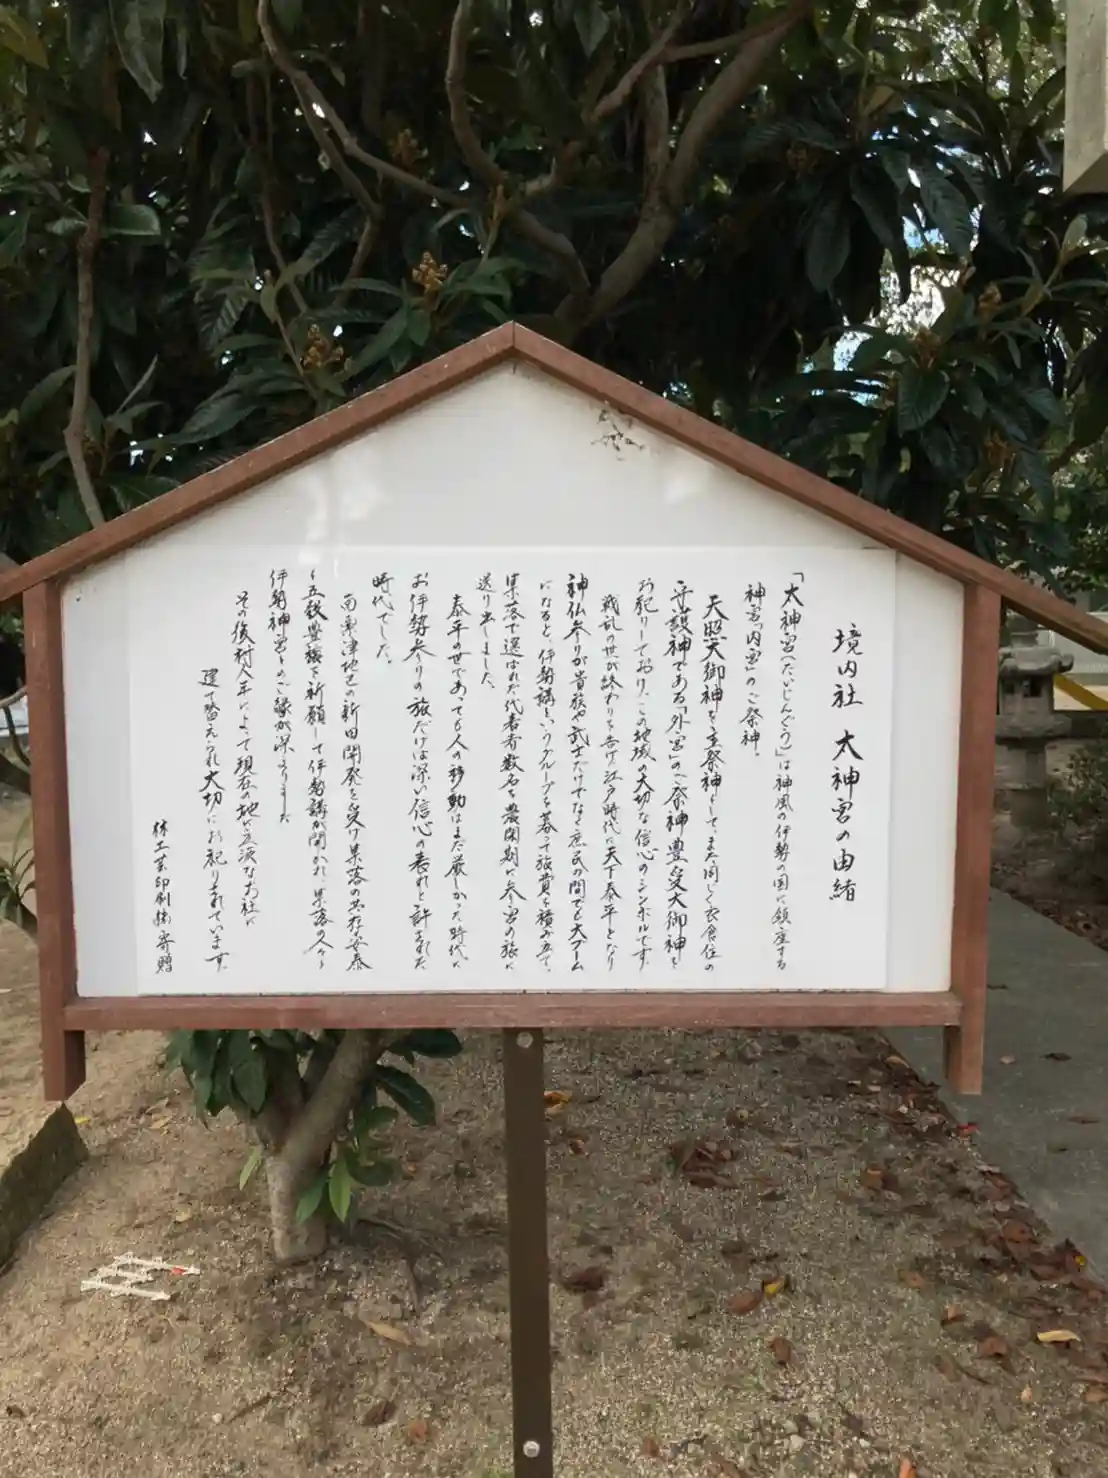 境内社 太神宮の由緒
「太神宮(だいじんぐう)」は神風の伊勢の国に鎮座する
神宮「内宮」のご祭神、
天照大御神を主祭神として、また同じく衣食住の
守護神である「外宮」のご祭神豊受大御神を
お祀りしており、この地域の大切な信心のシンボルです。
戦乱の世が終わりを告げ江戸時代に天下泰平となり
神仏参りが貴族や武士だけでなく庶民の間でも大ブーム
になると、伊勢講というグループを募って旅費を積み立て、
集落で選ばれた代表者数名を農閑期に参宮の旅に
送り出しました。
泰平の世であっても人の移動はまだ厳しかった時代に
お伊勢参りの旅だけは深い信心の表れと許された
時代でした。
南野津地区の新田開発を受け集落の共存安泰
と五穀豊穣を祈願して伊勢講が開かれ、集落の人々
伊勢神宮とのご縁が深まりました
その後村人年によって現在の地に立派なお社に
建て替えられ大切にお祀りされています。
印刷㈱寄贈